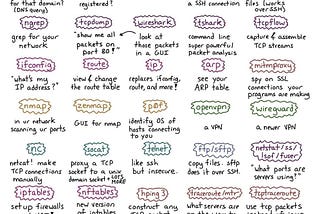 for that domain? registered? a SSH connection files (works
(DNS query) over SSH)
ngrep tcpdump wireshark tshark tcpflow
grep for your "show me all look at command line capture & assemble
network packets on those packets super powerful TCP streams
port 80!" in a GUI packet analysis
ifconfig route ip arp mitmproxy
"what's my view & change replaces ifconfig, see your spy on SSL
IP address?" the route table route, and more! ARP table connections your
programs are making
nmap zenmap p0f openvpn wireguard
in ur network GUI for nmap identify OS of a VPN a newer VPN
scanning ur ports hosts connecting
to you
nc socat telnet ftp/sftp netstat/ss/
lsof/fuser
netcat! make proxy a TCP like ssh copy files. sftp "what ports are
TCP connections socket to a unix but insecure does it over SSH. servers using?"
manually domain socket + LOTS
MORE
iptables nftables hping3 traceroute/mtr tcptraceroute
set up firewalls new version construct any what servers are use tcp packets
of iptables TCP packet